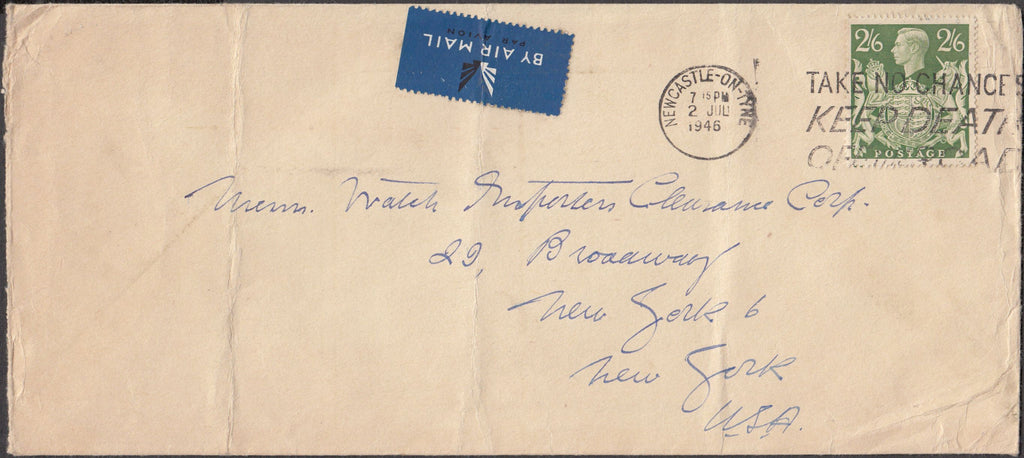 BY AIR MAIL
PAR AVION
NEWCASTLE-ON-TYNE
7 15 PM
2 JUL
1946
2/6 2/6
POSTAGE
TAKE NO CHANCES
KEEP DEATH
OFF ROAD
Messrs. Watch Importers Clearance Corp.
29, Broadway
New York 6
New York
USA.